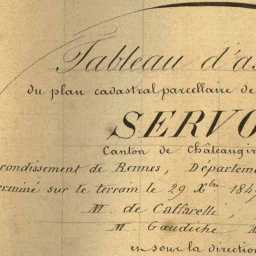 Tableau d'as
du plan cadastral parcellaire de
SERVO
Canton de Châteaugir
rondissement de Rennes, Départeme
erminé sur le terrain le 29 Xbre 184
M. de Caffarelli,
M. Gaudiche
en sous la direction